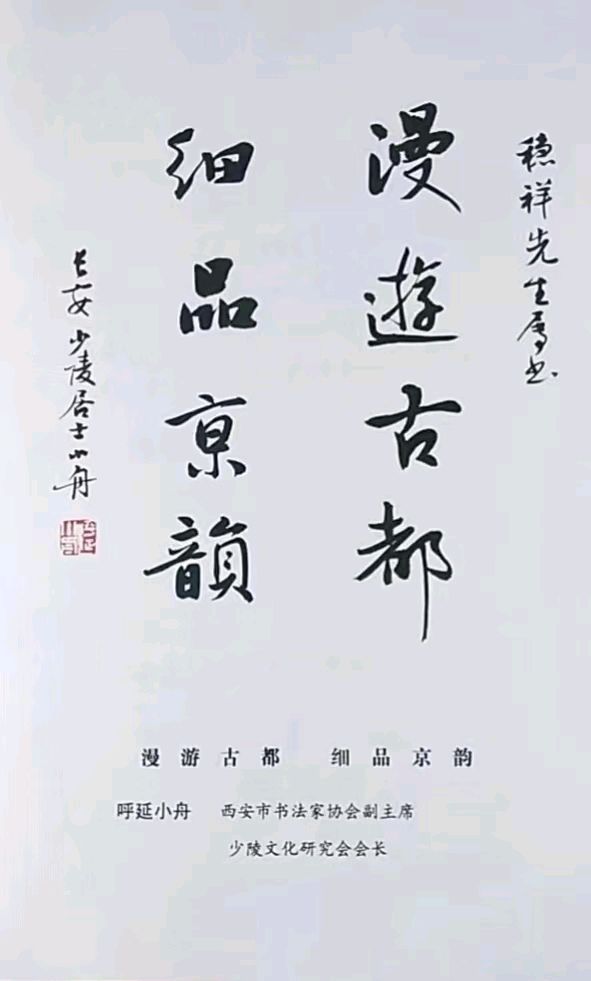 穏祥先生属书
漫遊古都
细品京韻
长安少陵居士小舟
漫游古都 细品京韵
呼延小舟 西安市书法家协会副主席
少陵文化研究会会长